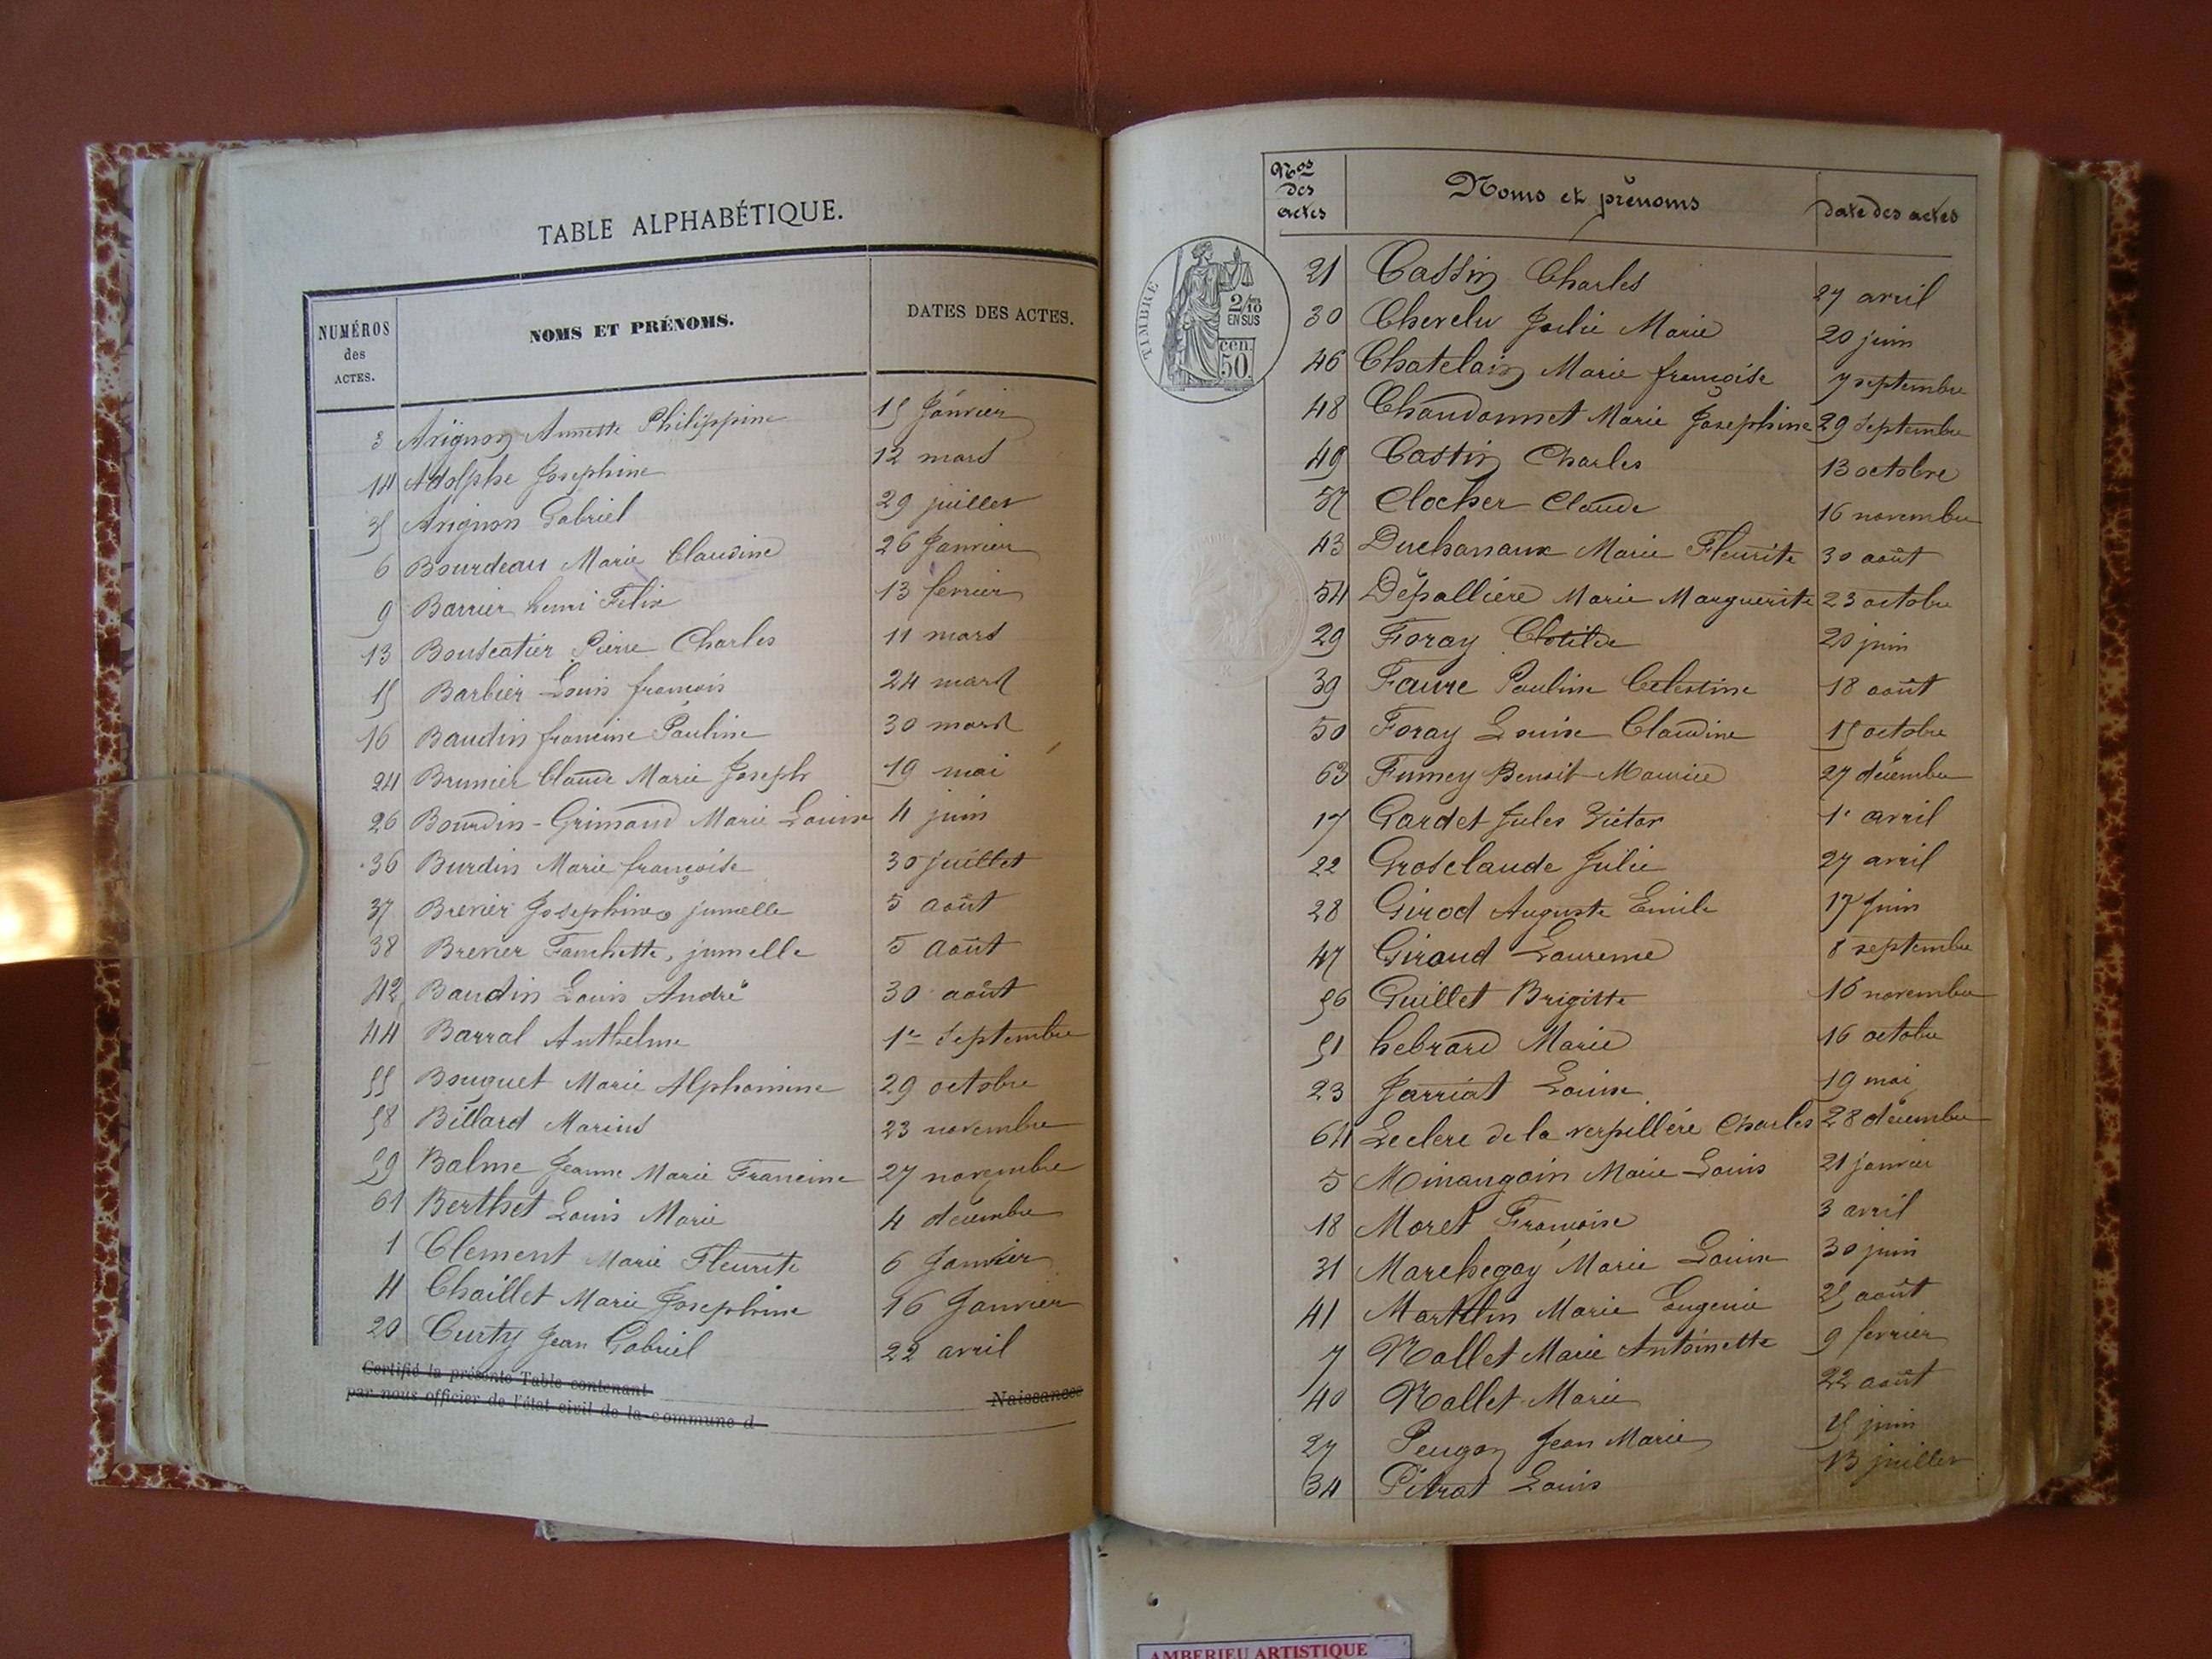 TABLE ALPHABÉTIQUE.
NUMÉROS des ACTES. NOMS ET PRÉNOMS. DATES DES ACTES.
3 Avignon Annette Philippine 15 Janvier
14 Adolphe Josephine 12 mars
35 Avignon Gabriel 29 juillet
6 Bourdeau Marie Claudine 26 Janvier
9 Barrier henri Felix 13 fevrier
13 Bouscatier Pierre Charles 11 mars
15 Barbier Louis francois 24 mars
16 Baudin francine Pauline 30 mars
24 Brunier Claude Marie Joseph 19 mai
26 Bourdin-Grimaud Marie Louise 4 juin
36 Burdin Marie françoise 30 juillet
37 Brevier Josephine, jumelle 5 août
38 Brevier Fanchette, jumelle 5 août
42 Baudin Louis André 30 août
44 Barral Anthelme 1er Septembre
55 Bouguet Marie Alphonsine 29 octobre
58 Billard Marius 23 novembre
59 Balme Jeanne Marie Francine 27 novembre
61 Berthet Louis Marie 4 décembre
1 Clement Marie Fleurite 6 Janvier
4 Chaillet Marie Josephine 16 Janvier
20 Curty Jean Gabriel 22 avril
Certifié la présente Table contenant Naissances
par nous officier de l'état civil de la commune d
Nos des actes Noms et prénoms date des actes
TIMBRE
2/10 EN SUS
cen. 50.
21 Cassin Charles 27 avril
30 Chevelu Julie Marie 20 juin
46 Chatelain Marie françoise 7 septembre
48 Chaudonnet Marie Josephine 29 Septembre
49 Castin Charles 13 octobre
57 Clocher Claude 16 novembre
43 Duchanaux Marie Fleurite 30 août
54 Dépallière Marie Marguerite 23 octobre
29 Foray Clotilde 20 juin
39 Faure Pauline Celestine 18 août
50 Foray Louise Claudine 15 octobre
63 Fumey Benoit-Maurice 27 décembre
17 Gardet Jules Victor 1r avril
22 Grosclaude Julie 27 avril
28 Girod Auguste Emile 17 Juin
47 Giraud Laurence 8 septembre
56 Guillet Brigitte 16 novembre
51 hebrard Marie 16 octobre
23 Jarriat Louise 19 mai
64 Leclerc de la verpillére Charles 28 décembre
5 Minangoin Marie Louis 21 janvier
18 Moret Françoise 3 avril
31 Marchegay Marie Louise 30 juin
41 Martelin Marie Eugenie 25 août
7 Nallet Marie Antoinette 9 fevrier
40 Nallet Marie 22 août
27 Peugon Jean Marie 15 juin
34 Pitrat Louis 13 juillet
AMBERIEU ARTISTIQUE